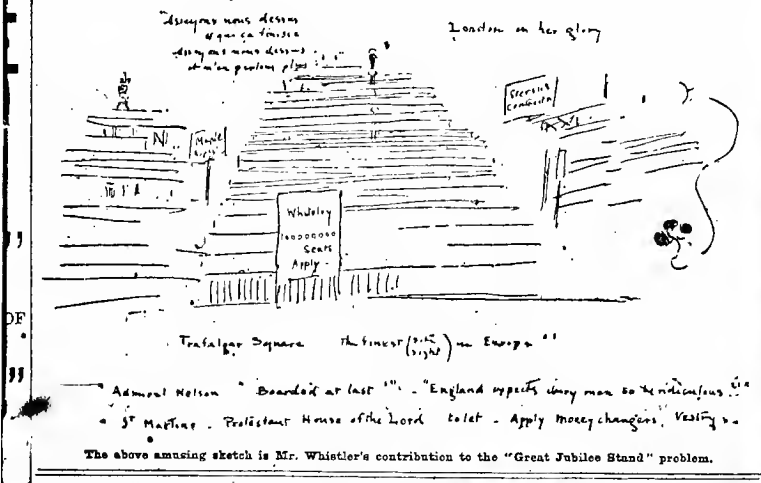 "Asseyons nous dessus
et que ça finisse
Asseyons nous dessus
et n'en parlons plus!"
London in her glory
Maple
Whiteley
100000000
Seats
Apply -
Trafalgar Square the finest (site sight) in Europe"!
Admiral Nelson "Boarded at last"! - "England expects every man to be ridiculous"!
St Martins - Protestant House of the Lord to let - Apply Moneychangers, Vestry
OF
The above amusing sketch is Mr. Whistler's contribution to the "Great Jubilee Stand" problem.